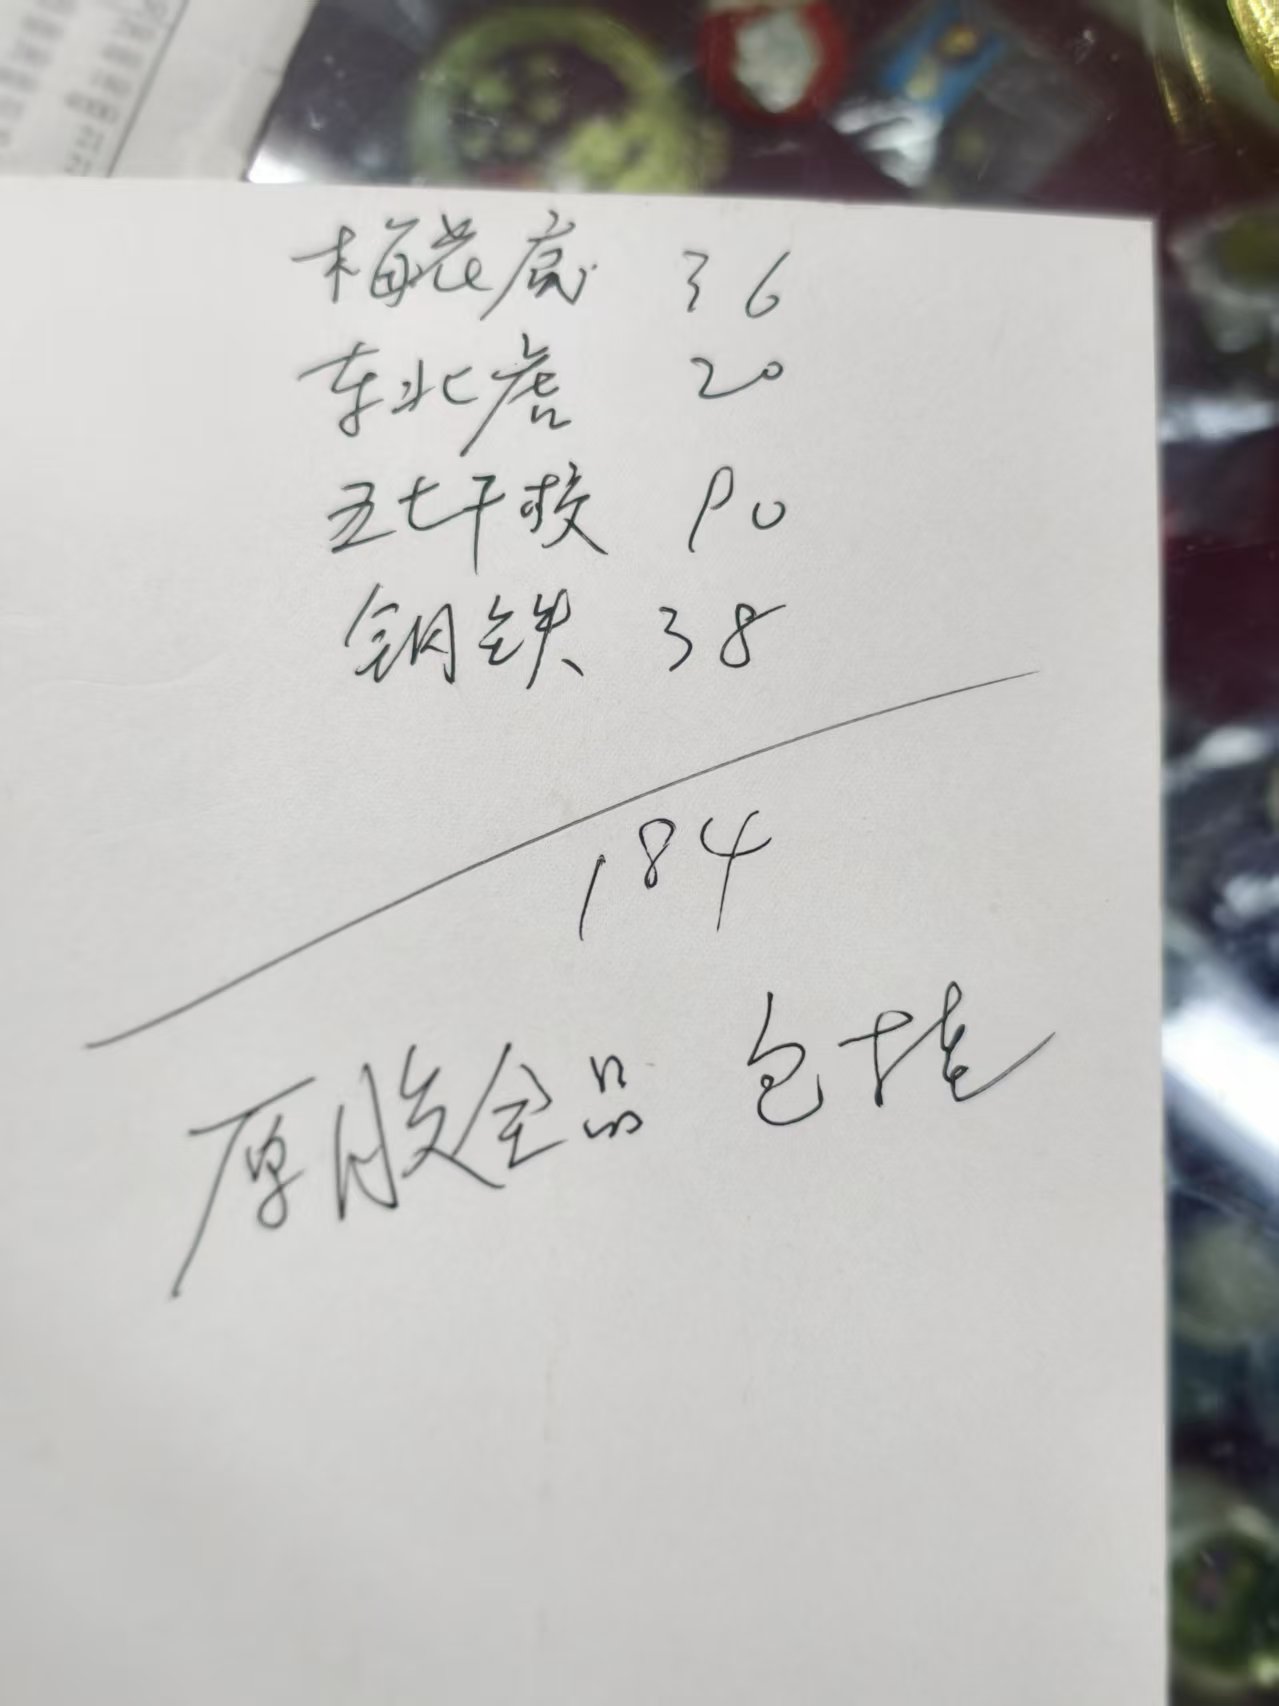 梅花鹿 36
东北虎 20
五七干校 90
钢铁 38
184
原胶全品 包挂